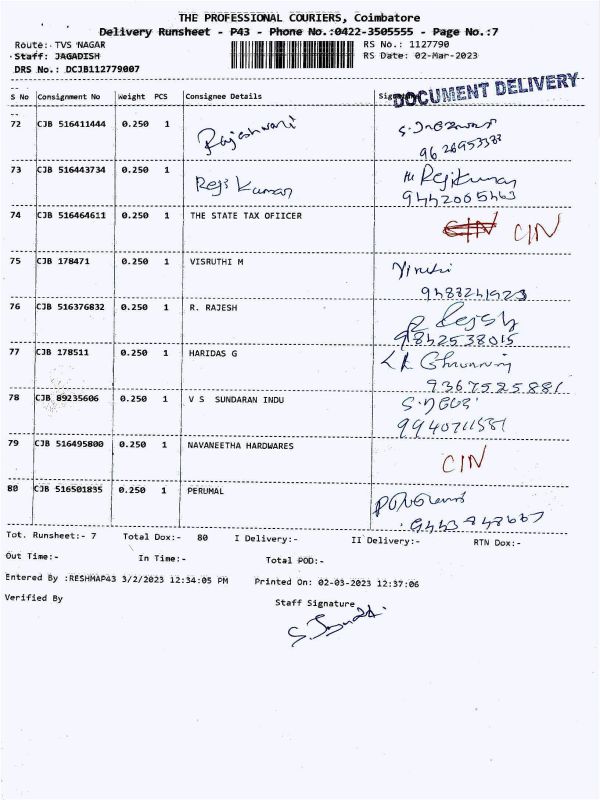 THE PROFESSIONAL COURIERS, Coimbatore
Delivery Runsheet - P43 - Phone No.:0422-3505555 - Page No.:7
Route: TVS NAGAR RS No.: 1127790
Staff: JAGADISH RS Date: 02-Mar-2023
DRS No.: DCJB112779007
DOCUMENT DELIVERY
S No Consignment No Weight PCS Consignee Details
72 CJB 516411444 0.250 1 Rajeshwari
73 CJB 516443734 0.250 1 Reji Kumar Rejikumar
9442005463
74 CJB 516464611 0.250 1 THE STATE TAX OFIICER CIN CIN
75 CJB 178471 0.250 1 VISRUTHI M
9488241923
76 CJB 516376832 0.250 1 R. RAJESH R Rajesh
9842538015
77 CJB 178511 0.250 1 HARIDAS G
9367525881
78 CJB 89235606 0.250 1 V S SUNDARAN INDU
9940711581
79 CJB 516495800 0.250 1 NAVANEETHA HARDWARES CIN
80 CJB 516501835 0.250 1 PERUMAL
9443848667
Tot. Runsheet:- 7 Total Dox:- 80 I Delivery:- II Delivery:- RTN Dox:-
Out Time:- In Time:- Total POD:-
Entered By :RESHMAP43 3/2/2023 12:34:05 PM Printed On: 02-03-2023 12:37:06
Verified By Staff Signature